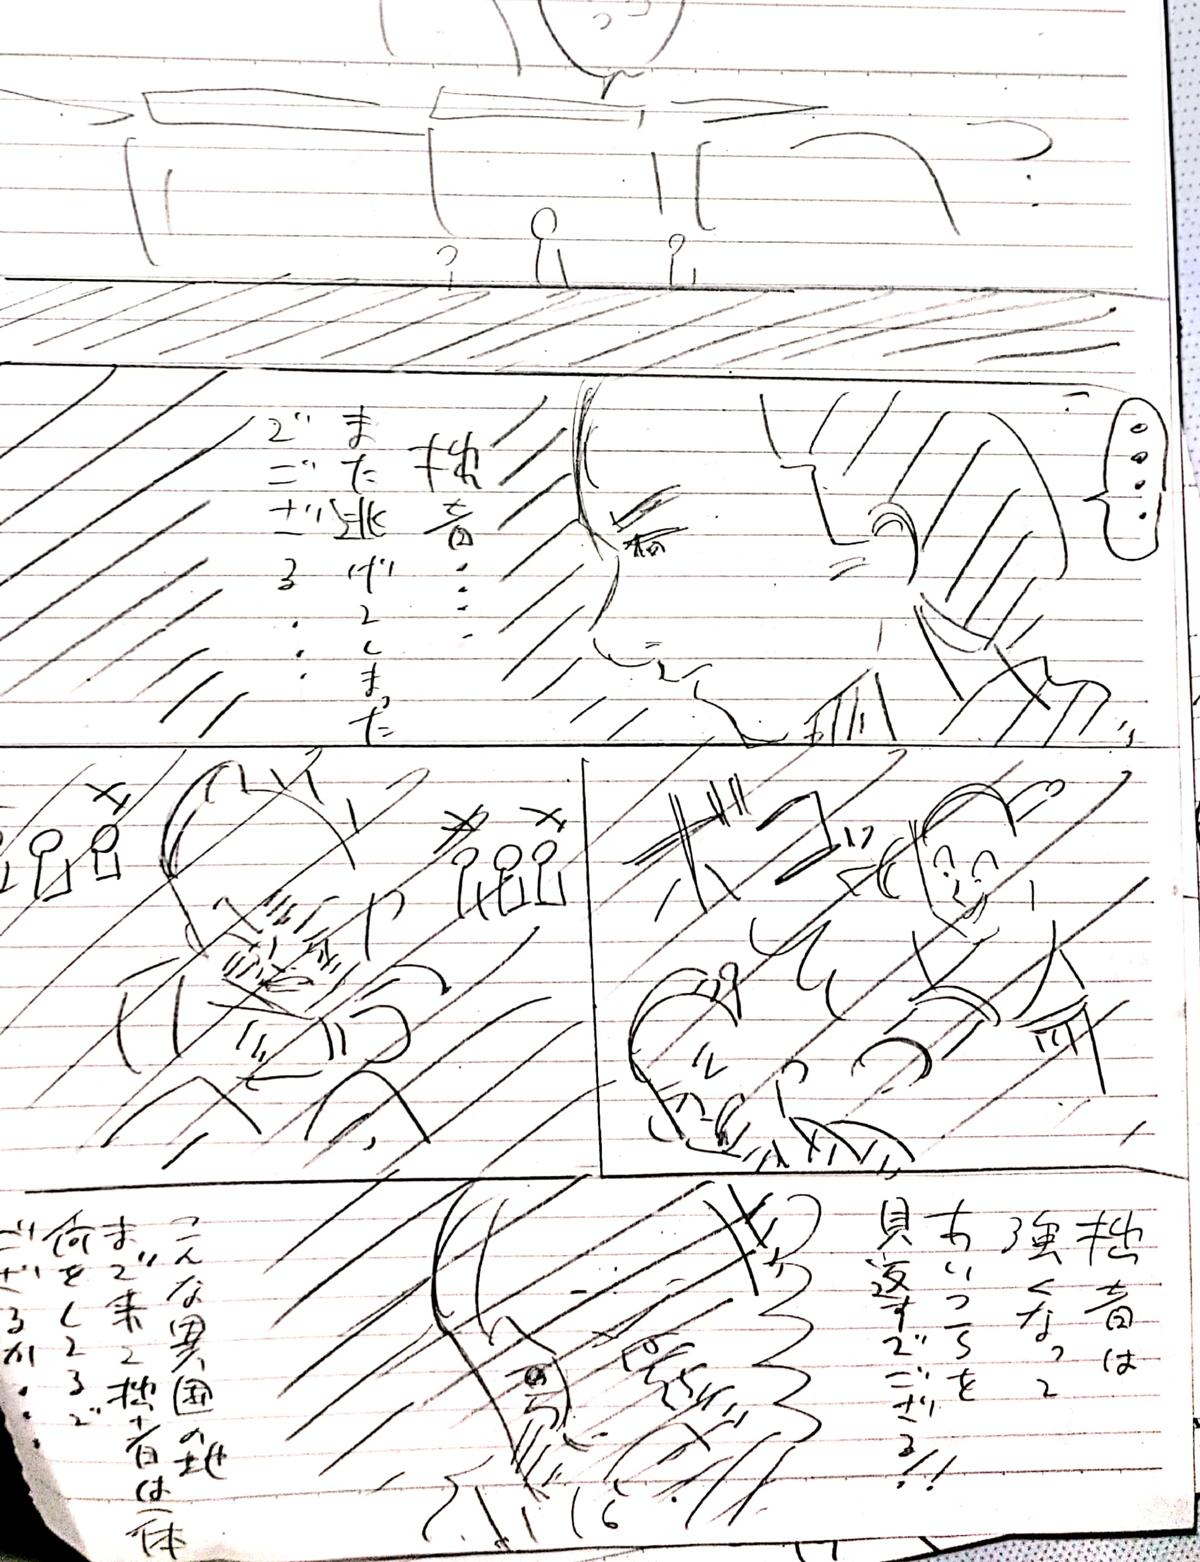 ?
・・・・
拙者・・・
また逃げてしまった
でござる・・・
ボコッ
拙者は
強くなって
あいつらを
見返すでござる!!
こんな異国の地
まで来て拙者は一体
何をしてるで
ござるか・・・